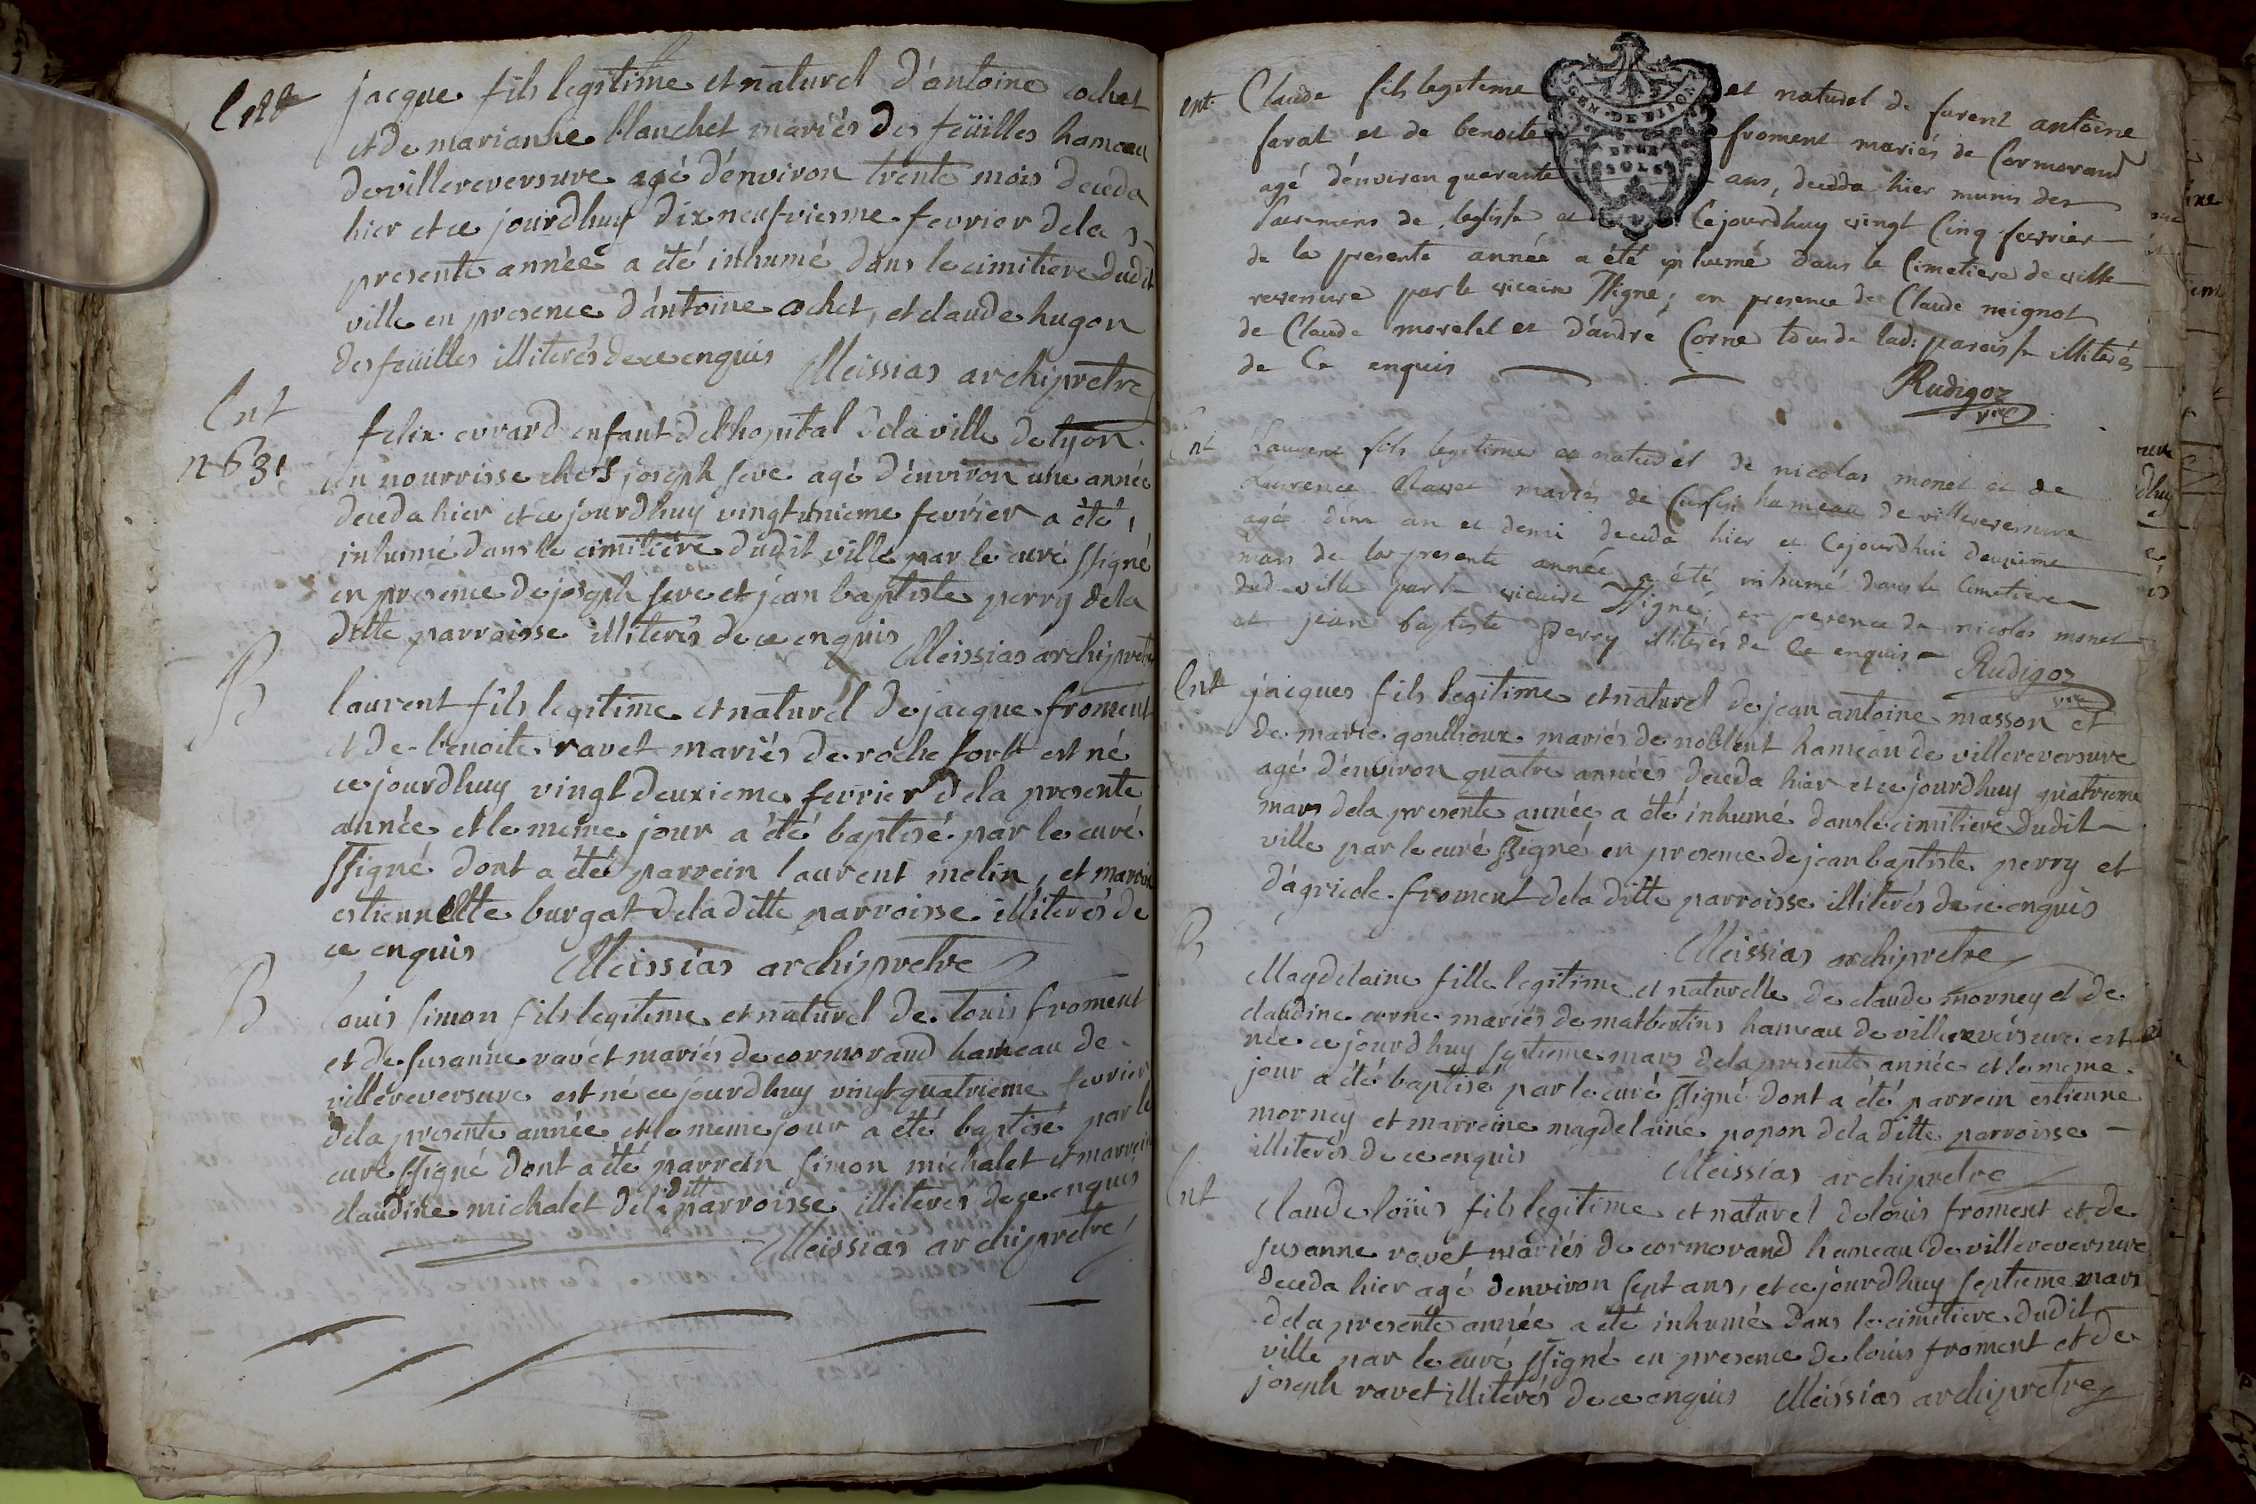 Ent
jacque fils legitime et naturel d'antoine cochet
et de marianne blanchet mariés des feüilles hameau
de villereversure agé d'énviron trente mois deceda
hier et ce jourdhuy dix neufvieme fevrier de la
presente année a été inhumé dans le cimitiere dudit
ville en presence d'ántoine cochet, et claude hugon
des feüilles illiterés de ce enquis Meissias archipretre
Ent
n 631
felix evrard enfant de l'hopital de la ville de lyon
en nourrisse chés joseph feve agé d'énviron une année
deceda hier et ce jourdhuy vingtunieme fevrier a été
inhumé dans le cimitiere dudit ville par le curé ssigné
en presence de joseph feve et jean baptiste perry de la
ditte parroisse illiterés de ce enquis Meissias archipretre
B
laurent fils legitime et naturel de jacque froment
et de benoite ravet mariés de roche fort est né
ce jourdhuy vingt deuxieme fevrier de la presente
année et le meme jour a été baptisé par le curé
ssigné dont a été parrein laurent melin, et marreine
estiennette burgat de la ditte parroisse illiterés de
ce enquis Meissias archipretre
B
louis simon fils legitime et naturel de louis froment
et de susanne ravet mariés de cormorand hameau de
villereversure est né ce jourdhuy vingtquatrieme fevrier
de la presente année et le meme jour a été baptisé par le
curé ssigné dont a été parrein simon michalet et marreine
claudine michalet de la ditt parroisse illiterés de ce enquis
Meissias archipretre
ent
Claude fils legitime et naturel de furent antoine
farat et de benoite froment mariés de Cormorand
agé d'énviron quarante ans, deceda hier munis des
Sacremens de leglise et Cejourdhuy vingt Cinq fevrier
de la presente année a été inhumé dans le Cimetiere de ville
reversure par le vicaire ssigné, en presence de Claude mignot
de Claude morelet et d'andré Corne tous de lad: paroisse illiterés
de Ce enquis
GEN. DE DIJON
SOLS
Rudigoz
vic
Ent
Laurent fils legitime et naturel de nicolas monet et de
laurence Ravet mariés de Curfin hameau de villereversure
agé d'un an et demi deceda hier et Cejourdhui deuxieme
mars de la presente année a été inhumé dans le Cimetiere
dud. ville par le vicaire ssigné: en presence de nicolas monet
et jean baptiste perry illiterés de Ce enquis
Rudigoz
vic
Ent
jacques fils legitime et naturel de jean antoine masson et
de marie goullioux mariés de noblent hameau de villereversure
agé d'énviron quatre années deceda hier et ce jourdhuy quatrieme
mars de la presente année a été inhumé dans le cimitiere dudit
ville par le curé ssigné en presence de jean baptiste perry et
d'ágricole froment de la ditte parroisse illiterés de ce enquis
Meissias archipretre
B
Magdelaine fille legitime et naturelle de claude morney et de
claudine corne mariés de matbertins hameau de villereversure est
née ce jourdhuy septieme mars de la presente année et le meme
jour a été baptisé par le curé ssigné dont a été parrein estienne
morney et marreine magdelaine popon de la ditte parroisse
illiterés de ce enquis Meissias archipretre
Ent
Claude loüis fils legitime et naturel de louis froment et de
susanne ravet mariés de cormorand hameau de villereversure
deceda hier agé denviron sept ans, et ce jourdhuy septieme mars
de la presente année a été inhumé dans le cimitiere dudit
ville par le curé ssigné en presence de louis froment et de
joseph ravet illiterés de ce enquis Meissias archipretre